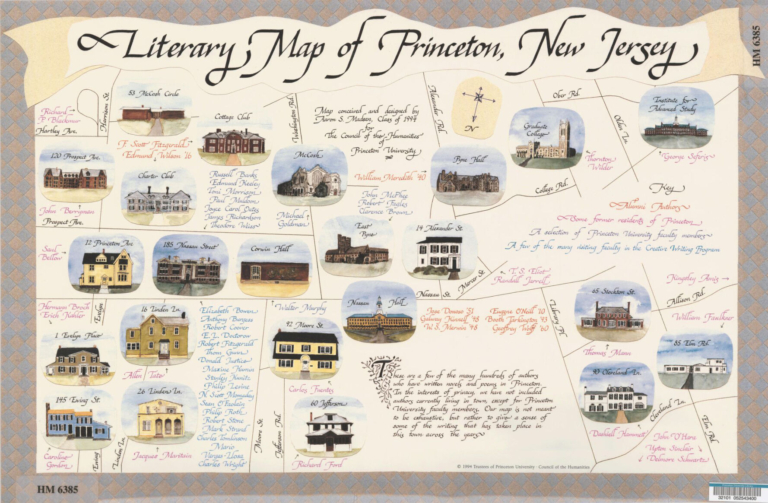 Literary Map of Princeton, New Jersey
HM 6385
Map conceived and designed by
Aaron S. Madsen, Class of 1994
for
The Council of the Humanities
of
Princeton University
Washington Rd.
Alexander Rd.
N
Olin Rd.
Olden Ln.
Institute for
Advanced Study
Richard
P. Blackmur
Hartley Ave.
Harrison St.
53 McCosh Circle
F. Scott Fitzgerald
Edmund Wilson 16
Cottage Club
McCosh
William Meredith 40
Pyne Hall
Graduate
College
Thornton
Wilder
College Rd.
120 Prospect Ave.
John Berryman
Prospect Ave.
Charter Club
Russell Banks
Edmund Keeley
Toni Morrison
Paul Muldoon
Joyce Carol Oates
James Richardson
Theodore Weiss
Michael
Goldman
John McPhee
Robert Fagles
Clarence Brown
Key
Alumni Authors
Some former residents of Princeton
A selection of Princeton University faculty members
A few of the many visiting faculty in the Creative Writing Program
Saul
Bellow
12 Princeton Ave.
185 Nassau Street
Corwin Hall
East
Pyne
14 Alexander St.
Mercer St.
T. S. Eliot
Randall Jarrell
Nassau St.
Nassau Hall
Library Pl.
Hermann Broch
Erich Kahler
Evelyn
16 Linden Ln.
Elizabeth Bowen
Anthony Burgess
Robert Coover
E. L. Doctorow
Robert Fitzgerald
Thom Gunn
Donald Justice
Maxine Kumin
Stanley Kunitz
Philip Levine
N. Scott Momaday
Philip Roth
Robert Stone
Mark Strand
Charles Tomlinson
Mario
Vargas Llosa
Charles Wright
Walter Murphy
92 Moore St.
Carlos Fuentes
60 Jefferson
Richard Ford
Moore St.
Jefferson Rd.
1 Evelyn Place
Allen Tate
145 Ewing St.
Caroline
Gordon
Ewing
26 Linden Ln.
Linden Ln.
Jacques Maritain
Galway Kinnell 48
W. S. Merwin 48
Eugene O'Neill 10
Booth Tarkington 93
Geoffrey Wolff 60
45 Stockton St.
Thomas Mann
Kingsley Amis
Allison Rd.
William Faulkner
Elm Rd.
Cleveland Ln.
John O'Hara
Upton Sinclair
Delmore Schwartz
These are a few of the many hundreds of authors
who have written novels and poems in Princeton.
In the interests of privacy, we have not included
authors currently living in town, except for Princeton
University faculty members. Our map is not meant
to be exhaustive, but rather to give a sense of
some of the writing that has taken place in
this town across the years
© 1994 Trustees of Princeton University - Council of the Humanities
HM 6385